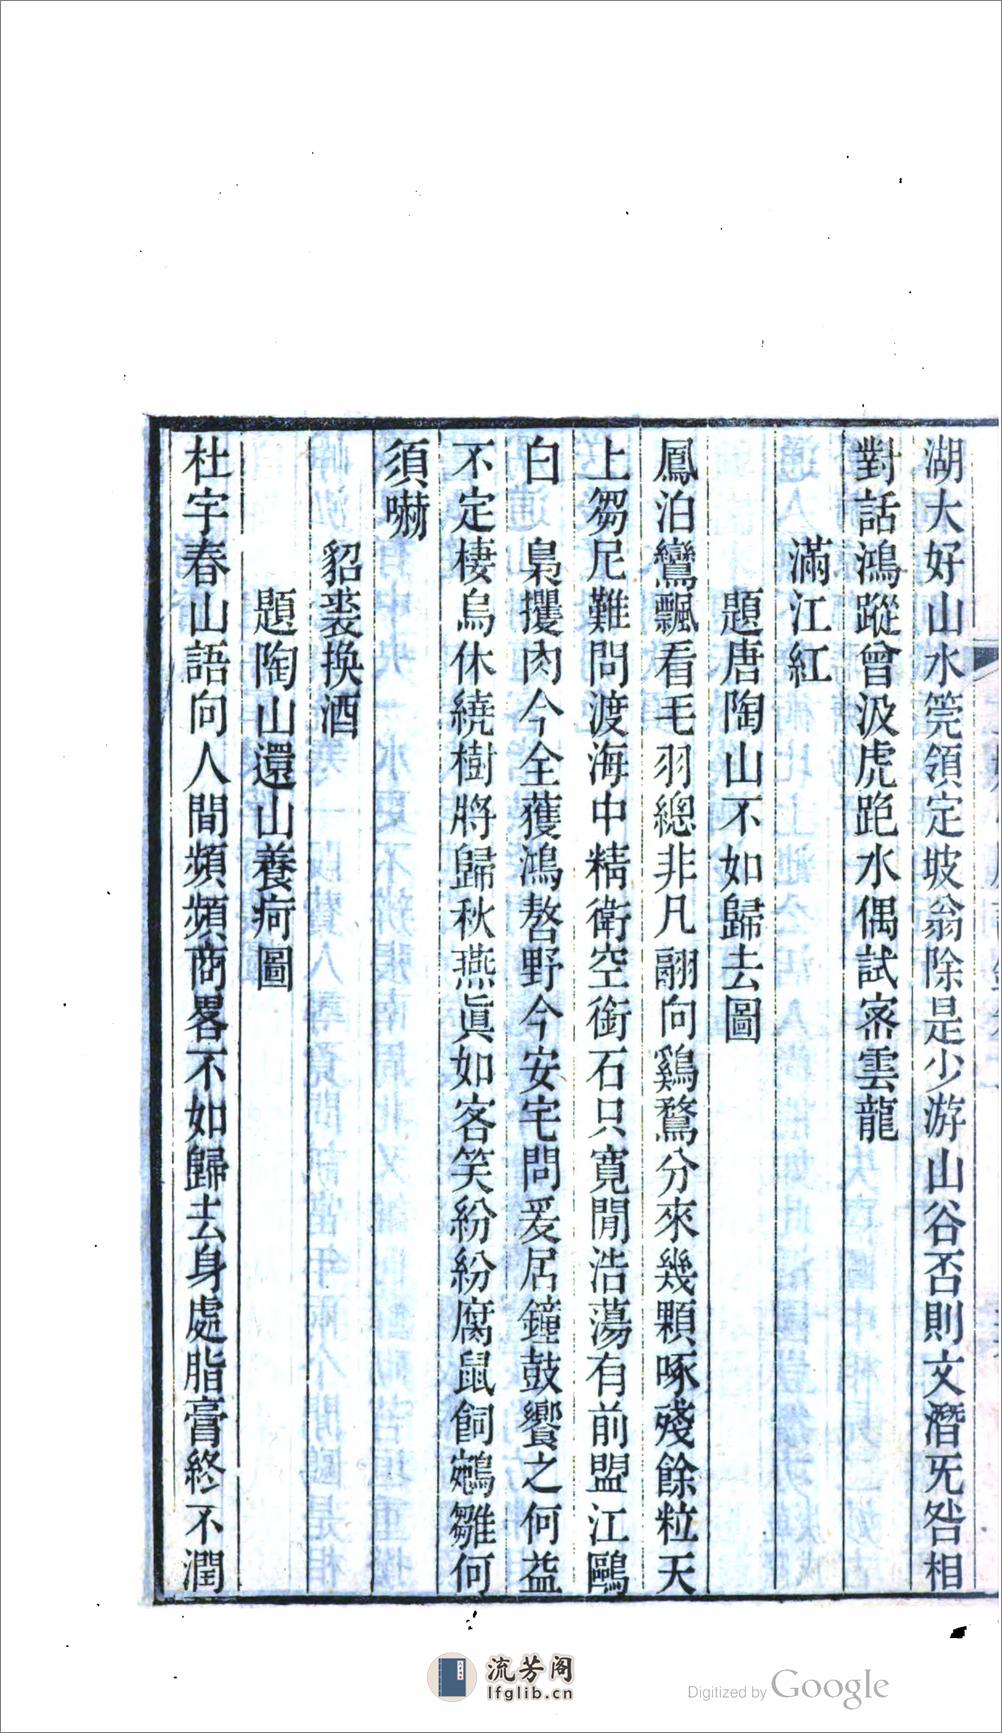 湖大好山水筦領定坡翁除是少游山谷否則文潛旡咎相
對話鴻蹤曾汲虎跑水偶試密雲龍
滿江紅
題唐陶山不如歸去圖
鳳泊鸞飄看毛羽總非凡翮向鷄鶩分來幾顆啄殘餘粒天
上芻尼難問渡海中精衛空銜石只寬閒浩蕩有前盟江鷗
白　梟攫肉今全獲鴻嗸野今安宅問爰居鐘鼓饗之何益
不定棲烏休繞樹將歸秋燕眞如客笑紛紛腐鼠飼鵷雛何
須嚇
貂裘換酒
題陶山還山養疴圖
杜宇春山語向人間頻頻商畧不如歸去身處脂膏終不潤
流芳阁
lfglib.cn
Digitized by Google